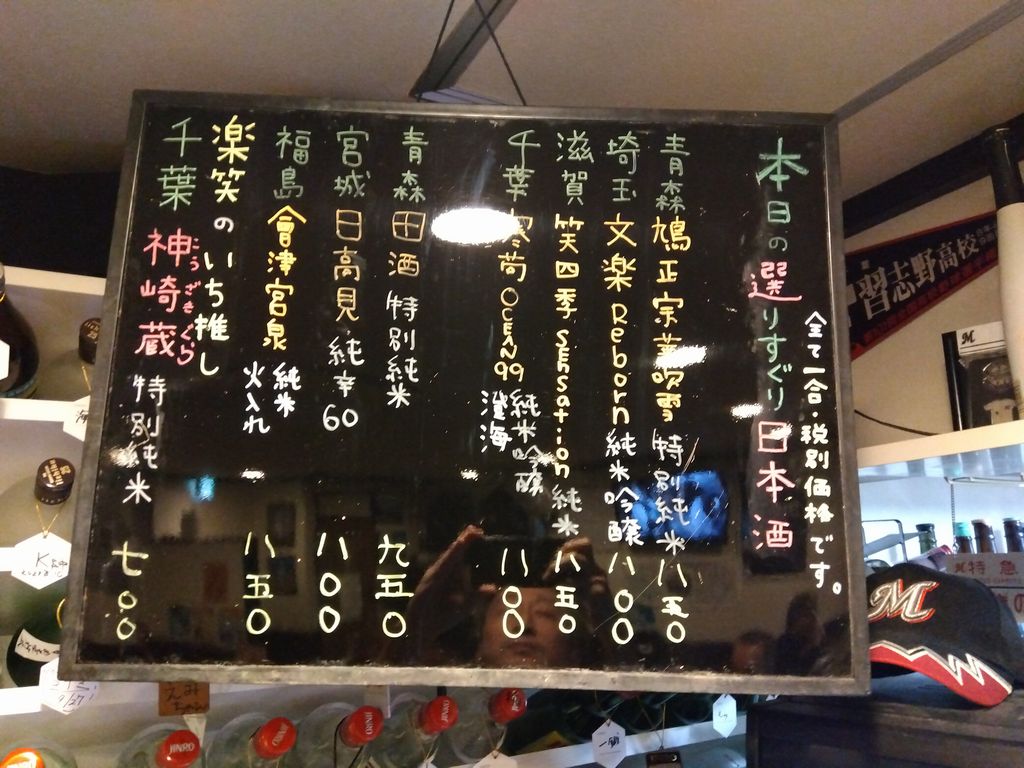 本日の選りすぐり日本酒
全て一合・税別価格です。
青森 鳩正宗 華吹雪 特別純米 八五〇
埼玉 文楽 Reborn 純米吟醸 八〇〇
滋賀 笑四季 Sensation 純米 八五〇
千葉 寒菊 OCEAN99 純米吟醸 澄海 八〇〇
青森 田酒 特別純米 九五〇
宮城 日高見 純辛60 八〇〇
福島 會津宮泉 純米 火入れ 八五〇
楽笑のいち推し
千葉 神崎蔵 特別純米 七〇〇
こうざきぐら
習志野高校
M
M
特急
JINRO
JINRO
JINRO
JINRO
JINRO